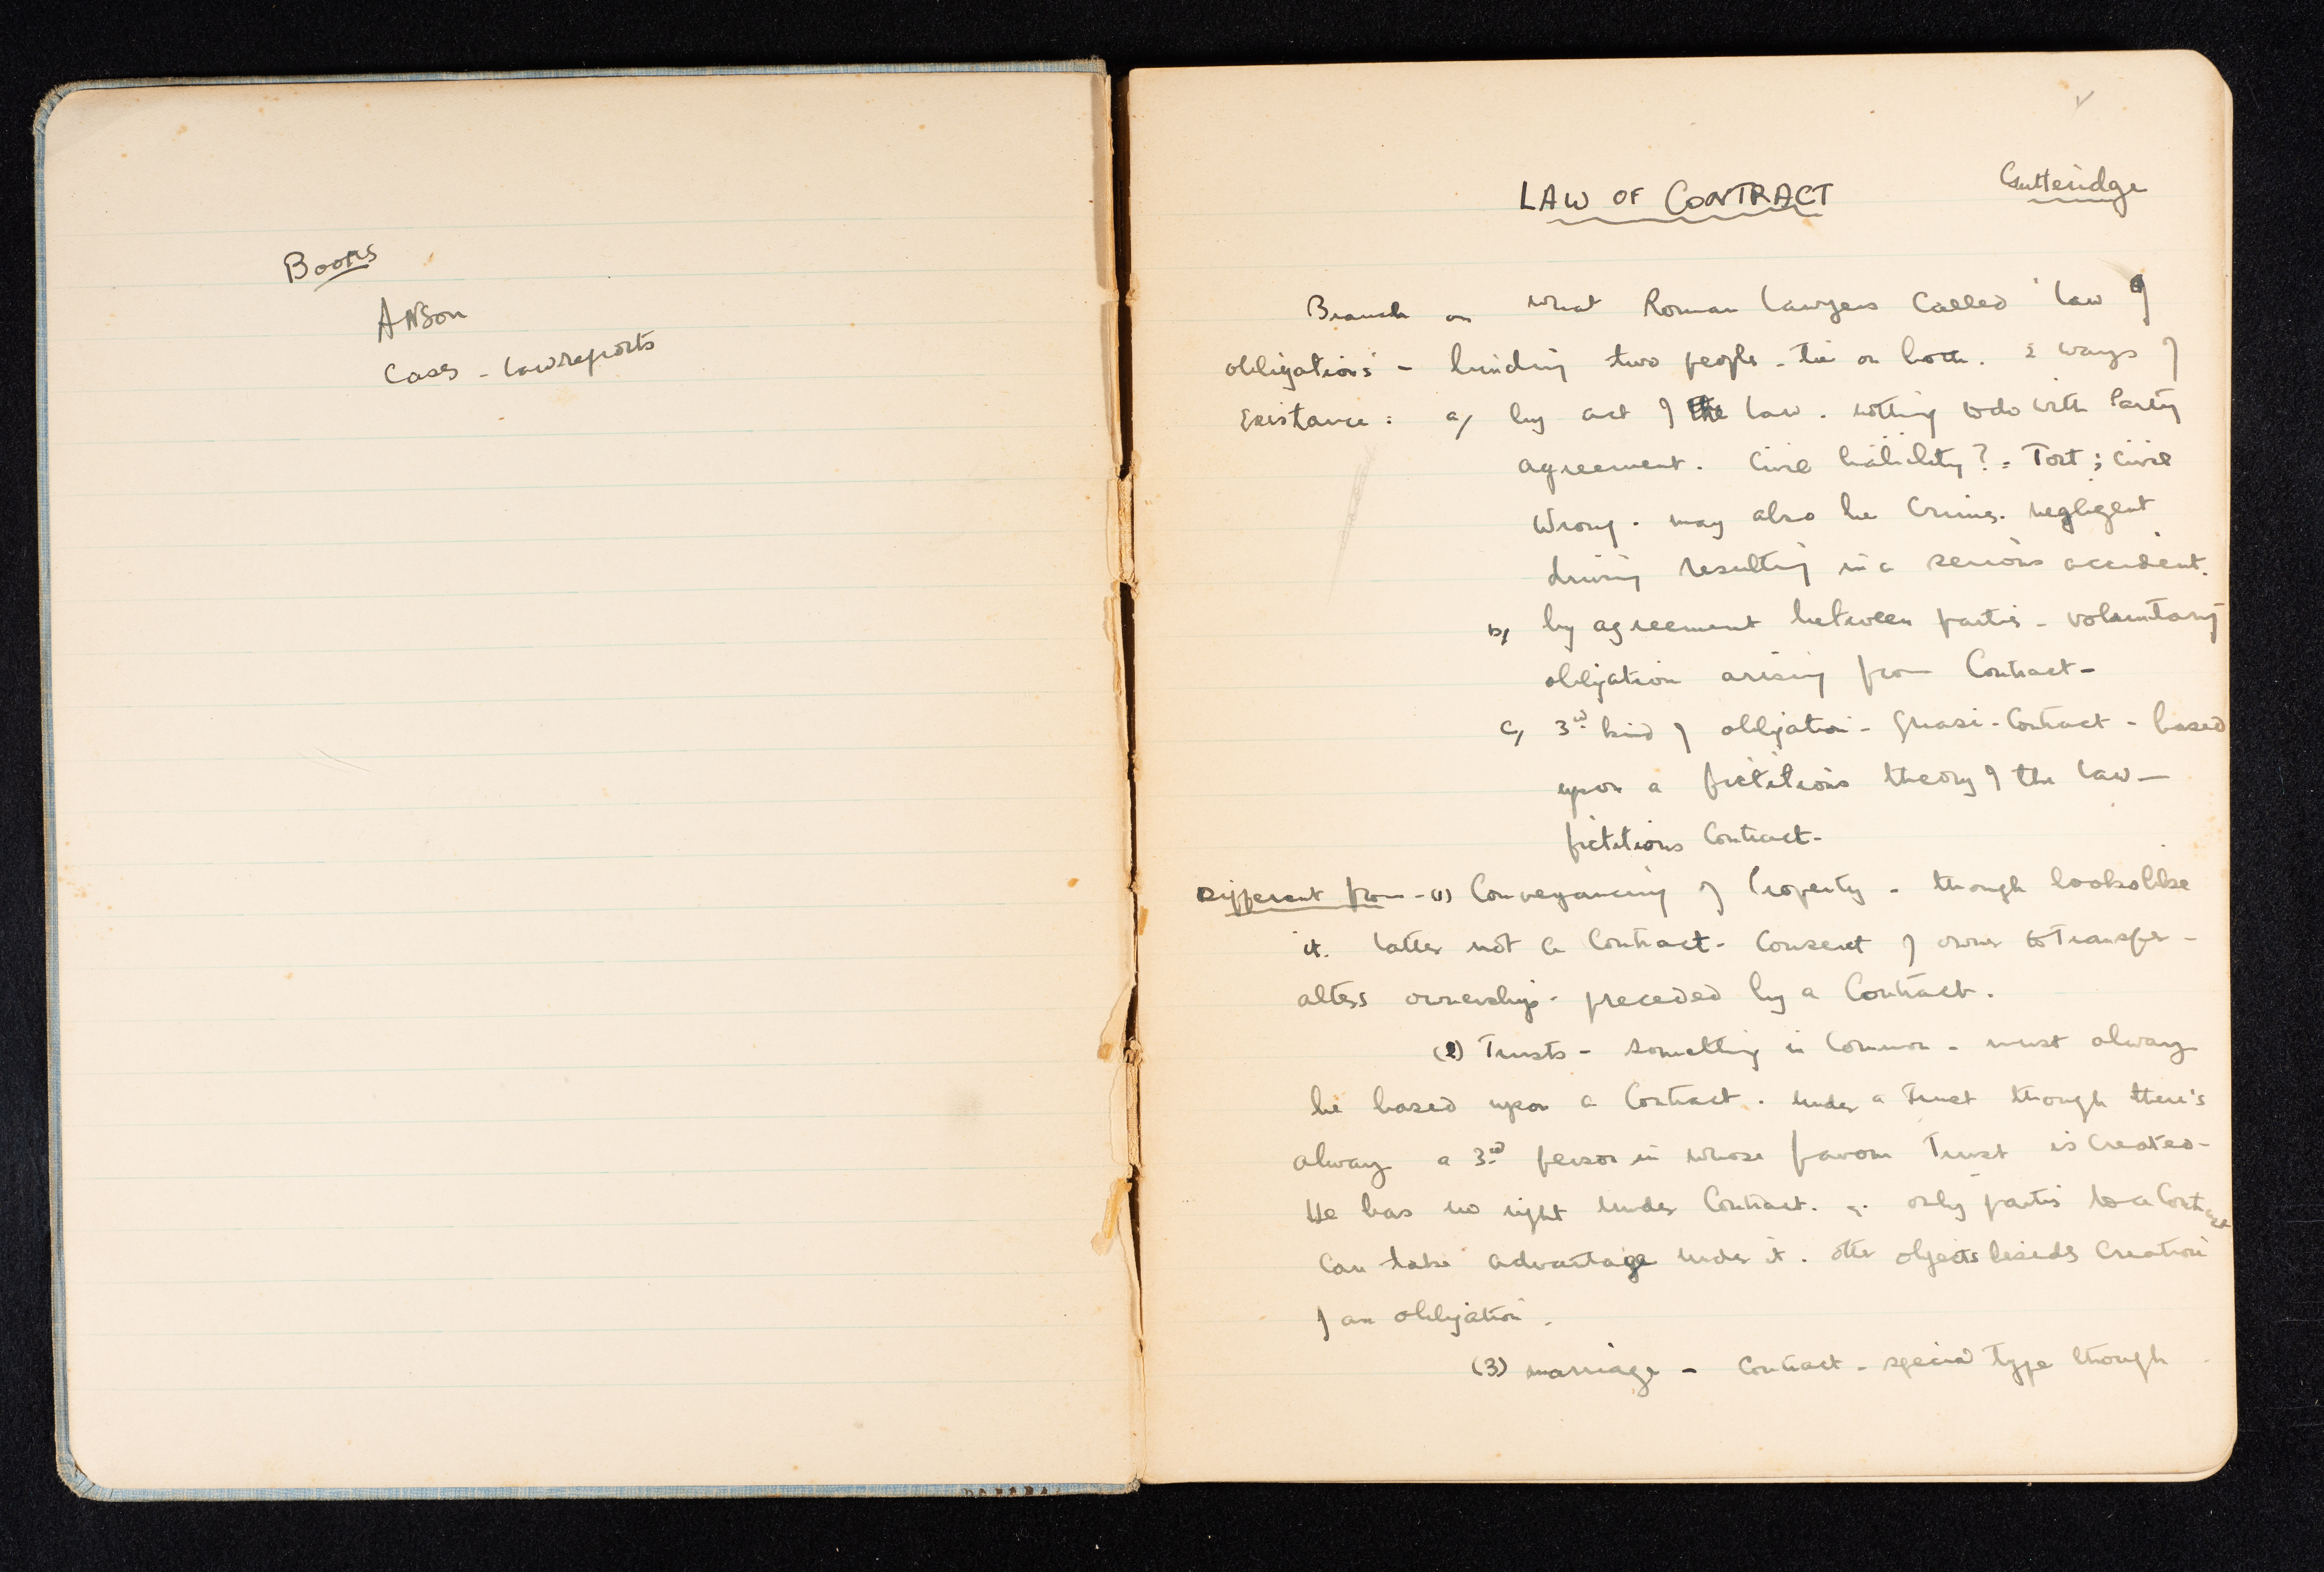 Books
Anson
Cases - law reports
LAW OF CONTRACT
Gutteridge
Branch on what Roman lawyers called 'law of
obligations' - binding two people - tie on both. 2 ways of
Existance : a/ by act of the law. nothing to do with Party
agreement. Civil liability? = Tort ; civil
Wrong. may also be Crime. negligent
driving resulting in a serious accident.
b/ by agreement between parties - voluntary
obligation arising from Contract -
c/ 3rd kind of obligation - Quasi-Contract - based
upon a fictitious theory of the law -
fictitious Contract -
Different from - (1) Conveyancing of Property - though looks like
it. latter not a Contract - Consent of owner to Transfer -
alters ownership - preceded by a Contract.
(2) Trusts - something in Common - must always
be based upon a Contract. Under a Trust though there's
always a 3rd person in whose favour Trust is Created -
He has no right under Contract. only parties to a Contract
can take advantage under it. other objects besides Creation
of an obligation.
(3) marriage - Contract - special Type though